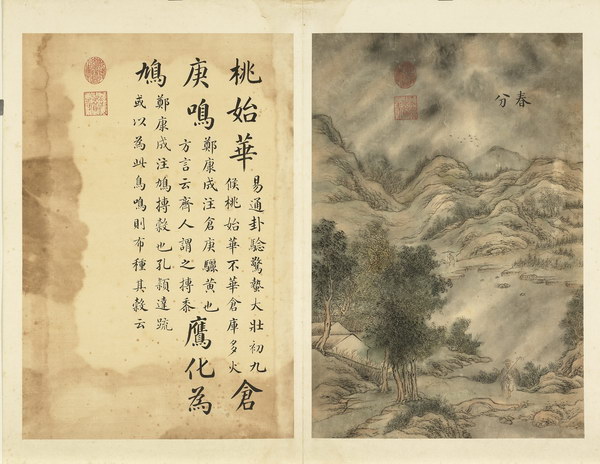 春分
桃始華
易通卦驗驚蟄大壯初九
候桃始華不華倉庫多火
倉
庚鳴
鄭康成注倉庚驪黃也
方言云齊人謂之摶黍
鷹化為
鳩
鄭康成注鳩搏穀也孔穎達疏
或以為此鳥鳴則布種其穀云